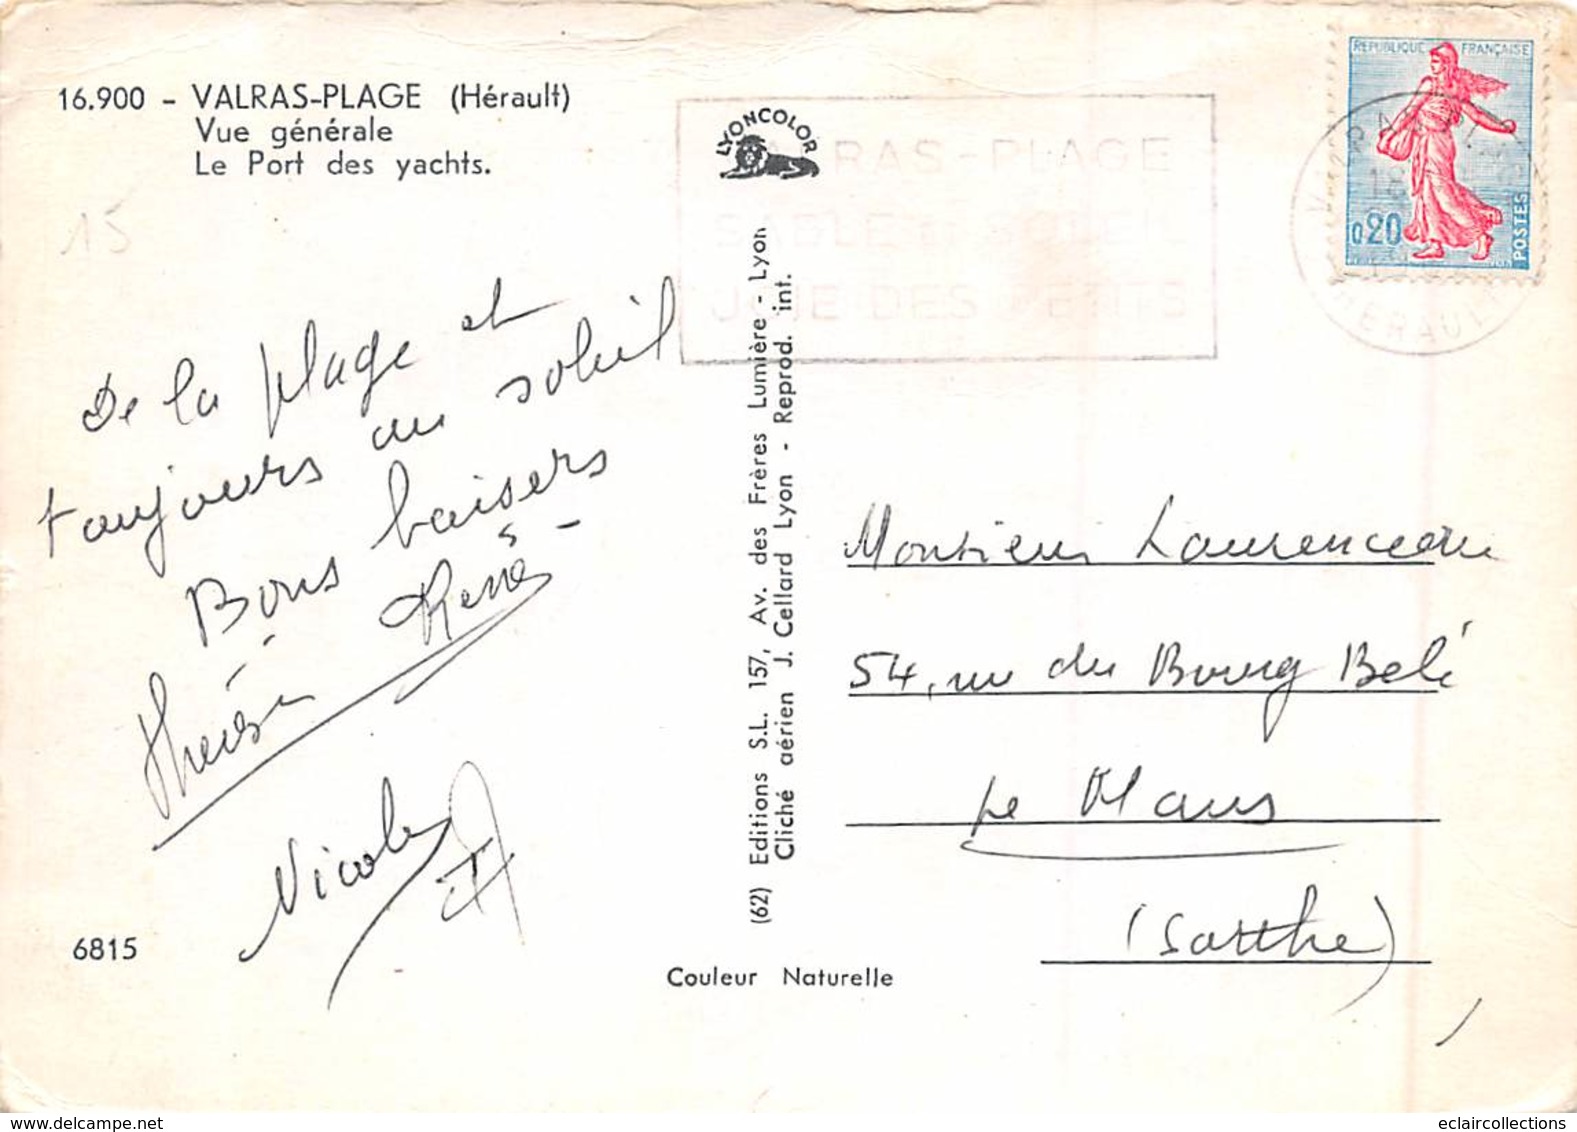 16.900 - VALRAS-PLAGE (Hérault)
Vue générale
Le Port des yachts.
15
LYONCOLOR
RAS-PLAGE
SABLE ET SOLEIL
JOIE DES PETITS
REPUBLIQUE FRANÇAISE
0,20
POSTES
18
HERAULT
De la plage et
toujours au soleil
Bons baisers
René
Thérèse
Nicole
6815
(62) Editions S.L. 157, Av. des Frères Lumière - Lyon
Cliché aérien J. Cellard Lyon - Reprod. int.
Couleur Naturelle
Monsieur Laurenceau
54, rue du Bourg Belé
Le Mans
(Sarthe)
eclaircollections